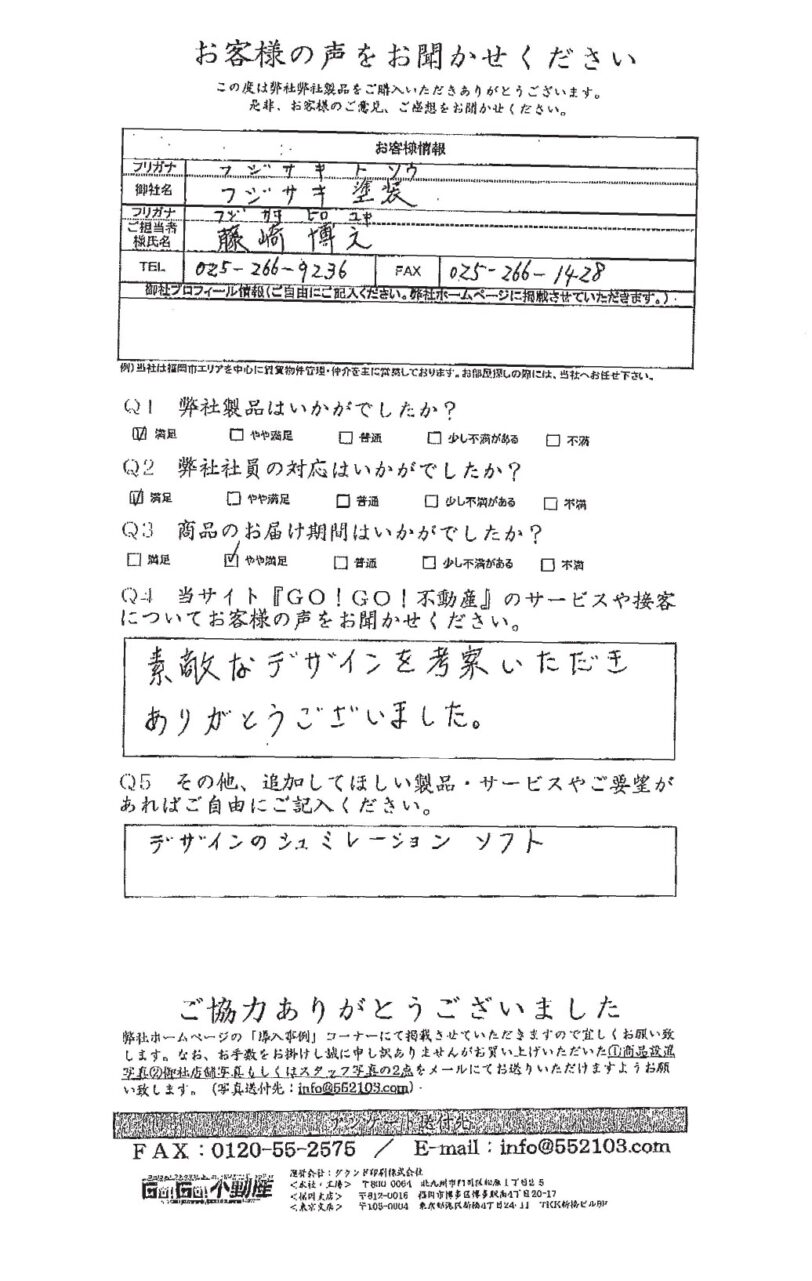 お客様の声をお聞かせください
この度は弊社弊社製品をご購入いただきありがとうございます。
是非、お客様のご意見、ご感想をお聞かせください。
お客様情報
フリガナ フジサキ トソウ
御社名 フジサキ 塗装
フリガナ フジ サキ ヒロ ユキ
ご担当者様氏名 藤崎 博之
TEL 025-266-9236 FAX 025-266-1428
御社プロフィール情報(ご自由にご記入ください。弊社ホームページに掲載させていただきます。)
例)当社は福岡市エリアを中心に賃貸物件管理・仲介を主に営業しております。お部屋探しの際には、当社へお任せ下さい。
Q1 弊社製品はいかがでしたか?
☑ 満足 □ やや満足 □ 普通 □ 少し不満がある □ 不満
Q2 弊社社員の対応はいかがでしたか?
☑ 満足 □ やや満足 □ 普通 □ 少し不満がある □ 不満
Q3 商品のお届け期間はいかがでしたか?
□ 満足 ☑ やや満足 □ 普通 □ 少し不満がある □ 不満
Q4 当サイト『GO!GO!不動産』のサービスや接客
についてお客様の声をお聞かせください。
素敵なデザインを考案いただき
ありがとうございました。
Q5 その他、追加してほしい製品・サービスやご要望が
あればご自由にご記入ください。
デザインのシュミレーション ソフト
ご協力ありがとうございました
弊社ホームページの「導入事例」コーナーにて掲載させていただきますので宜しくお願い致
します。なお、お手数をお掛けし誠に申し訳ありませんがお買い上げいただいた①商品設置
写真②御社店舗写真もしくはスタッフ写真の2点をメールにてお送りいただけますようお願
い致します。(写真送付先:info@552103.com)
アンケート送付先
FAX:0120-55-2575 / E-mail:info@552103.com
GO!GO!不動産
運営会社:グランド印刷株式会社
<本社・工場> 〒800-0064 北九州市門司区松原1丁目2-5
<福岡支店> 〒812-0016 福岡市博多区博多駅南4丁目20-17
<東京支店> 〒105-0004 東京都港区新橋4丁目24-11